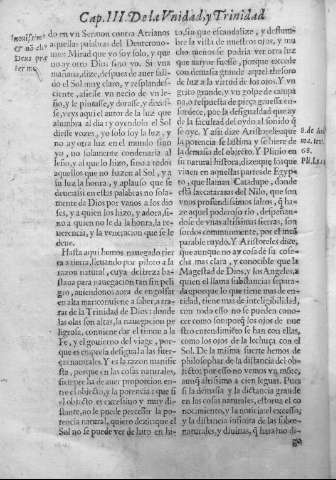 Cap. III. De la Vnidad, y Trinidad
do en vn Sermon contra Atrianos
aquellas palabras del Deuterono-
mio: Mirad que yo soy solo, y que
no ay otro Dios sino yo. Si vna
mañana, dize, despues de auer sali-
do el Sol muy claro, y resplande-
ciente, asiesse vn necio de vn le-
ño, y le pintasse, y dorasse, y dixes-
se, veys aqui el autor de la luz que
alumbra al dia: y oyendolo el Sol
diesse vozes, yo solo soy la luz, y
no ay otra luz en el mundo sino
yo, no solamente condenaria al
leño, y al que lo hizo, sino a todos
aquellos que no hazen al Sol, y a
su luz la honra, y aplauso que se
deue: assi en estas palabras no sola-
mente da Dios por vanos a los dio
ses, y a quien los hizo, y adora, si-
no a quien no le da la honra, la re-
uerencia, y la veneracion que se le
deue.
Hasta aqui hemos nauegado tier
ra a tierra, lleuando por piloto a la
razon natural, cuya destreza bas-
taua para nauegacion tan sin peli-
gro, auiendonos aora de engolfar
en alta mar conuiene a saber, a tra-
tar de la Trinidad de Dios: donde
las olas son altas, la nauegacion pe
ligrosa, conuiene dar el timon a la
Fe, y el gouierno del viage, por-
que es empresa desigual a las fuer-
ças naturales. Y es la razon manifie
sta, porque en las cosas naturales,
siempre ha de auer proporcion en-
tre el obiecto, y la potencia: que si
el obiecto es excessiuo y muy dis-
tante, no le puede percebir la po-
tencia natural, quiero dezir, que el
Sol no se puede ver de hito en hi-
to, sin que escandalize, y deslum-
bre la vista de nuestros ojos, y mu
cho menos se podria ver otra luz
que mayor fuesse, porque excede
con demasia grande aquel thesoro
de luz a la virtud de los ojos. Y vn
grito grande, y vn golpe de campa
na, o respuesta de pieça gruessa en-
sordece, por la desigualdad que ay
de la facultad del oydo al sonido q̃
se oye. Y assi dize Aristoteles que
la potencia se lastima y ofende con
la demasia del obiecto. Y Plinio en
su natural historia, dize que los que
viuen en aquellas partes de Egyp-
to, que llaman Catadupe, donde
està las cataratas del Nilo, que son
vnos profundissimos saltos, q̃ ha-
ze aquel poderoso rio, despeñan-
dose de vnas altissimas sierras, son
sordos comunmente, por el inco̅-
parable ruydo. Y Aristoteles dize,
que aunque no ay cosa de su cose-
cha mas clara, y conocible que la
Magestad de Dios, y los Angeles, a
quien el llama substancias separa-
das, porque lo que tiene mas de en
tidad, tiene mas de inteligibilidad,
con todo esso no se pueden cono-
cer como son: porq̃ los ojos de nue
stro entendimiẽto se han con ellas,
como los ojos de la lechuza con el
Sol. De la misma suerte hemos de
philosophar de la distancia del ob-
iecto; por esso no vemos vn nauio,
aunq̃ altissimo a cien leguas. Pues
si la demasia y la distancia grande
en las cosas naturales, estorua el co
nocimiento, y la noticia: el excesso,
y la distancia infinita de las sobre-
naturales, y diuinas, q̃ hara? no di-